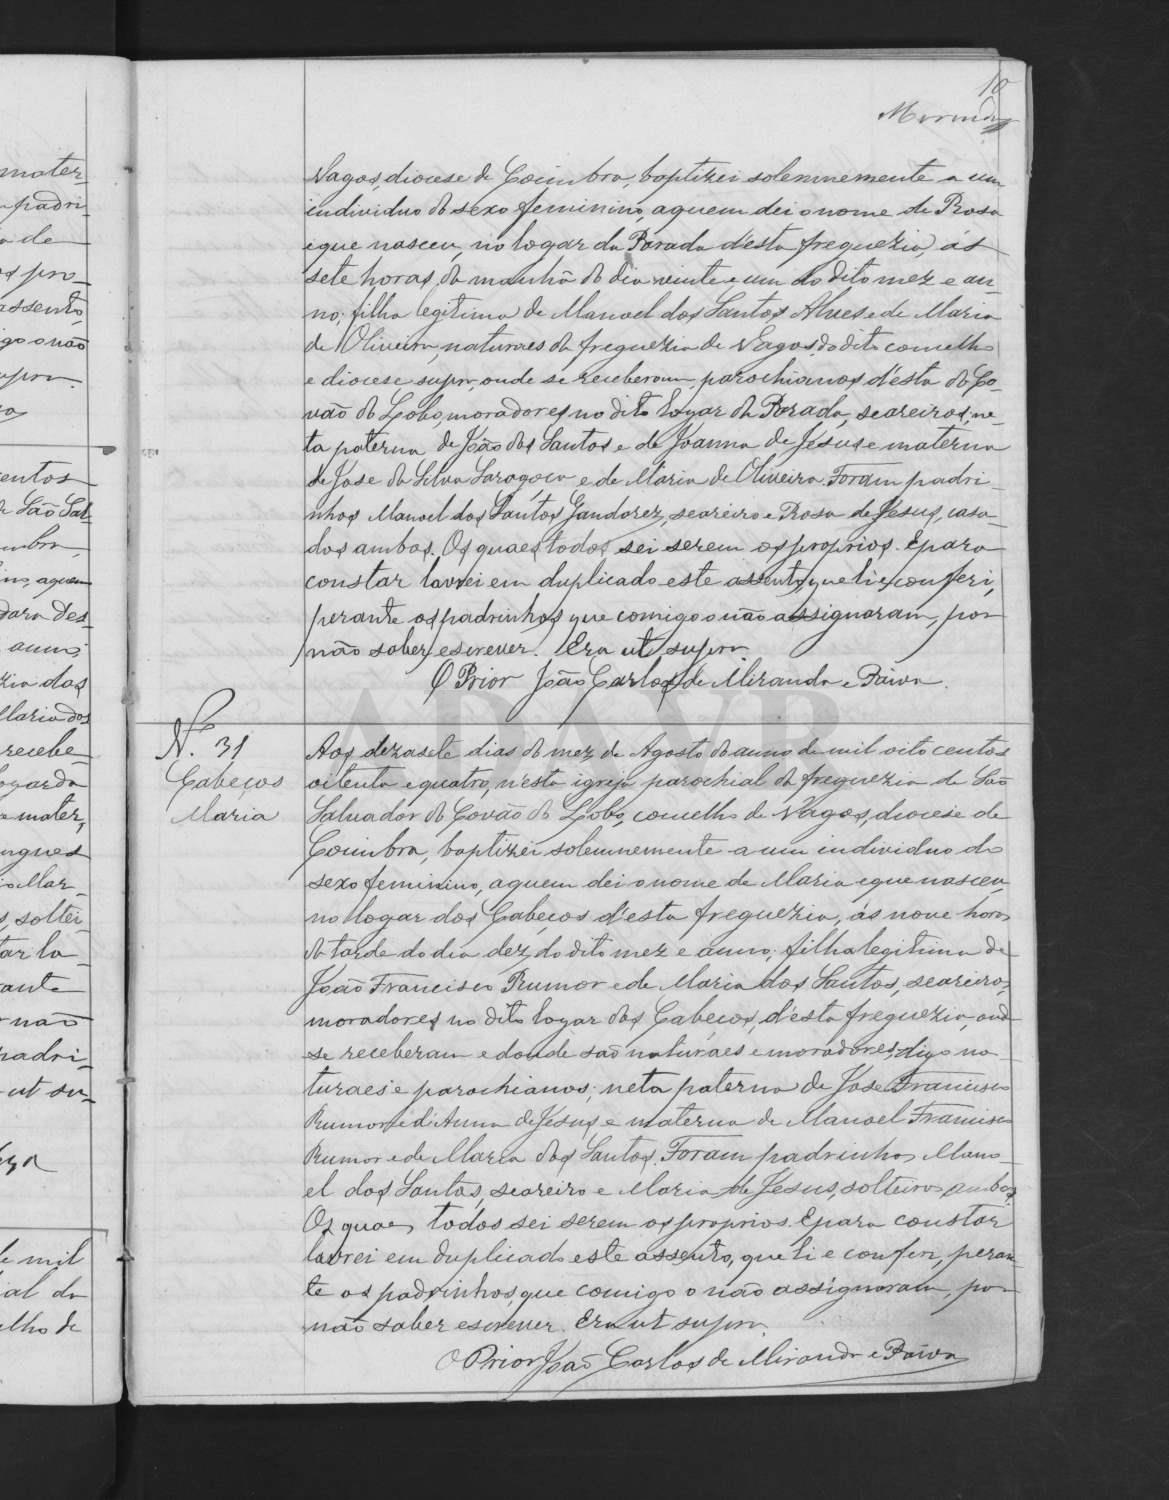 10
Miranda
Vagos, diocese de Coimbra, baptizei solemnemente a um
individuo do sexo feminino, a quem dei o nome de Rosa
e que nasceu, no logar da Parada d'esta freguezia, ás
sete horas, da manhã do dia vinte e um do dito mez e an-
no; filha legitima de Manoel dos Santos Alves e de Maria
de Oliveira, naturaes da freguezia de Vagos, do dito concelho
e diocese supra, onde se receberam, parochianos d'esta do Co-
vão do Lobo, moradores no dito logar da Parada, seareiros; ne-
ta paterna de João dos Santos e de Joanna de Jesus e materna
de Jose da Silva Saragoça e de Maria de Oliveira. Foram padri-
nhos Manoel dos Santos Gandarez, seareiro e Rosa de Jesus, casa-
dos ambos. Os quaes todos sei serem os proprios. E para
constar lavrei em duplicado este assento, que li e conferi,
perante os padrinhos que comigo o não assignaram, por
não saber escrever. Era ut supra.
O Prior João Carlos de Miranda e Paiva.
N.º 31
Cabeços
Maria
Aos dezasete dias do mez de Agosto do anno de mil oito centos
oitenta e quatro, n'esta igreja parochial da freguezia de São
Salvador do Covão do Lobo, concelho de Vagos, diocese de
Coimbra, baptizei solemnemente a um individuo do
sexo feminino, a quem dei o nome de Maria e que nasceu,
no logar dos Cabeços d'esta freguezia, ás nove horas
da tarde do dia dez, do dito mez e anno; filha legitima de
João Francisco Rumor e de Maria dos Santos, seareiros,
moradores no dito logar dos Cabeços, d'esta freguezia, onde
se receberam e donde são naturaes e moradores, digo na-
turaes e parochianos; neta paterna de Jose Francisco
Rumor e d'Anna de Jesus e materna de Manoel Francisco
Rumor e de Maria dos Santos. Foram padrinhos Mano-
el dos Santos, seareiro e Maria de Jesus, solteiros ambos.
Os quaes todos sei serem os proprios. E para constar
lavrei em duplicado este assento, que li e conferi, peran-
te os padrinhos, que comigo o não assignaram, por
não saber escrever. Era ut supra.
O Prior João Carlos de Miranda e Paiva
ADAVR